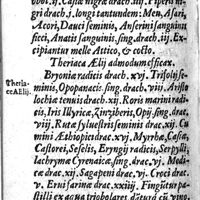 obol. ij. Casiæ nigræ drach. iij. Piperis ni-
gri drach. j. longi tantundem: Meu, Asari,
Acori, Dauci seminis, Anserini sanguinis
sicci, Anatis sanguinis, sing. drach. iij. Ex-
cipiantur melle Attico, & cocto.
Theriaca Ælij admodum efficax.
Theria-
ca Ælij.
Bryoniæ radicis drach. xvj. Trifolij se-
minis, Opopanacis, sing. drach. viij. Aristo-
lochiæ tenuis drach. xij. Roris marini radi-
cis, Iris Illyricæ, Zinziberis, Opij, sing. drac.
viij. Rutæ syluestris seminis drac. xij. Cu-
mini Æthiopici drac. xvj. Myrrhæ, Casiæ,
Castorei, Seselis, Eryngij radicis, Serpylli,
lachrymæ Cyrenaicæ sing. drac. vj. Modi-
cæ drac. xij. Sagapeni drac. vj. Croci drac.
v. Erui farinæ drac. xxiiij. Finguntur pa-
stilli ex aqua trioboλares, dantur cũ vino.